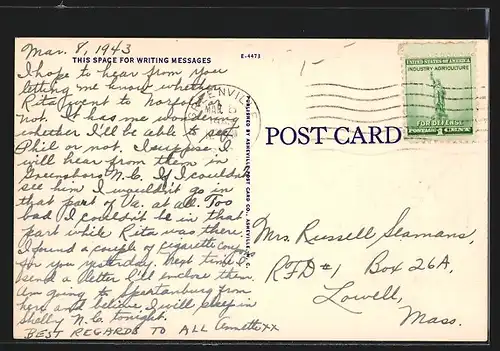 Mar. 8, 1943
THIS SPACE FOR WRITING MESSAGES
E-4473
I hope to hear from you
letting me know whether
Rita went to Norfolk or
not. It has me wondering
whether I'll be able to see
Phil or not. I suppose I
will hear from them in
Greensboro N.C. If I couldn't
see him I wouldn't go in
that part of Va. at all. Too
bad I couldn't be in that
part while Rita was there.
I found a couple of cigarette
for you yesterday. Next time I
send a letter I'll enclose them.
Am going to Spartanburg from
here and believe I will sleep in
Shelby N.C. tonight.
BEST REGARDS TO ALL Annette xx
PUBLISHED BY ASHEVILLE POST CARD CO., ASHEVILLE, N.C.
MAR 8
POST CARD
UNITED STATES OF AMERICA
INDUSTRY-AGRICULTURE
FOR DEFENSE
POSTAGE 1 CENT
Mrs. Russell Seamans,
RFD #1 Box 26A,
Lowell,
Mass.